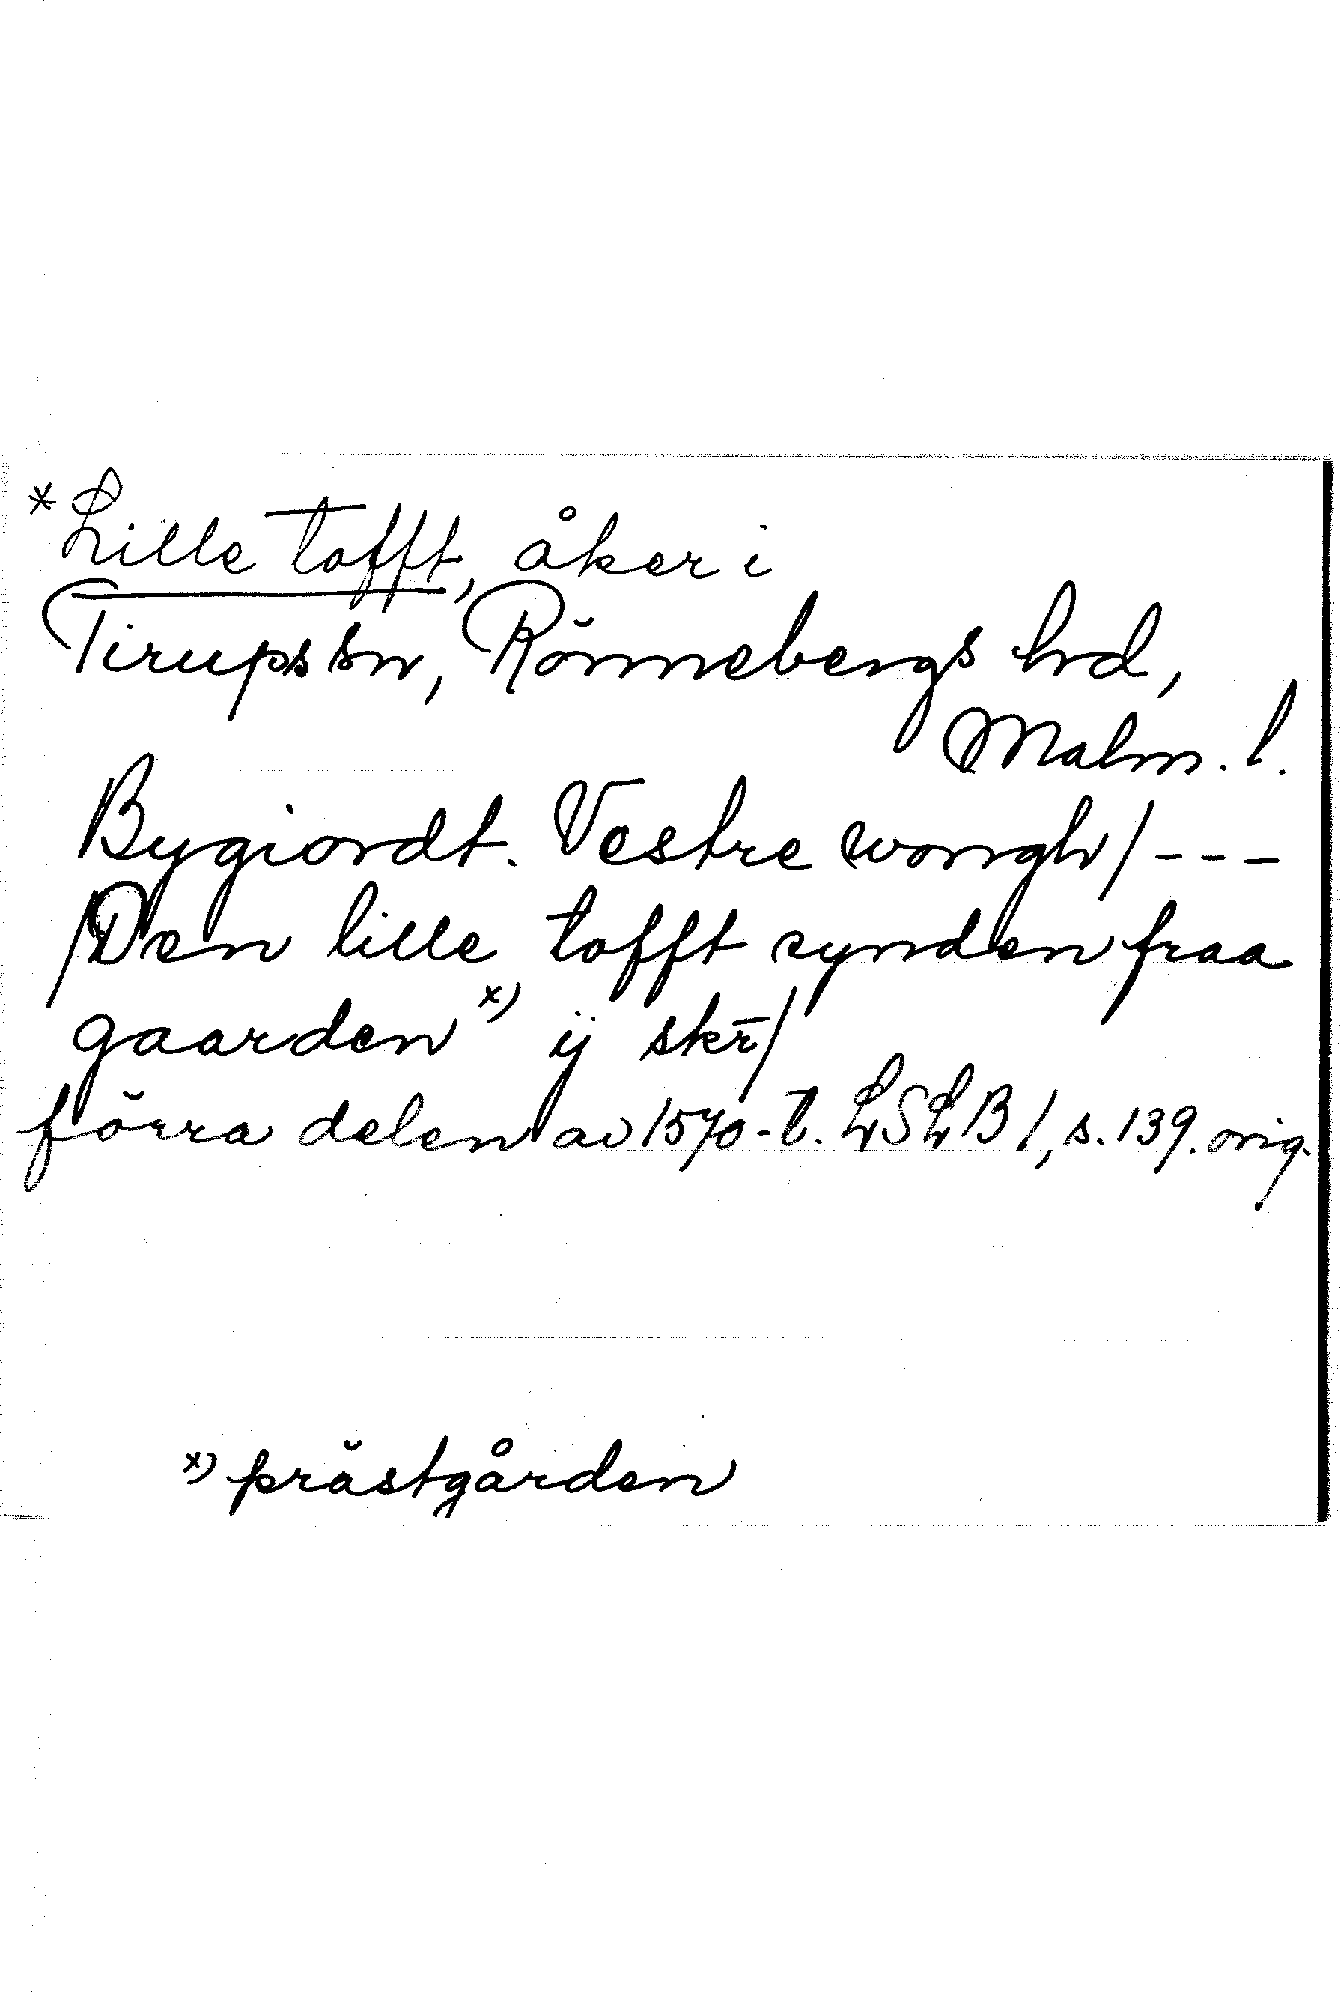 *Lille tofft, åker i
Tirups sn, Rönnebergs hd,
Malm. l.
Bygiordt. Vestre wongh/ - - -
/Den lille tofft synden fraa
gaarden x) ij skr̄/
förra delen av 1570-t. LSLB 1, s. 139. orig.
x) prästgården